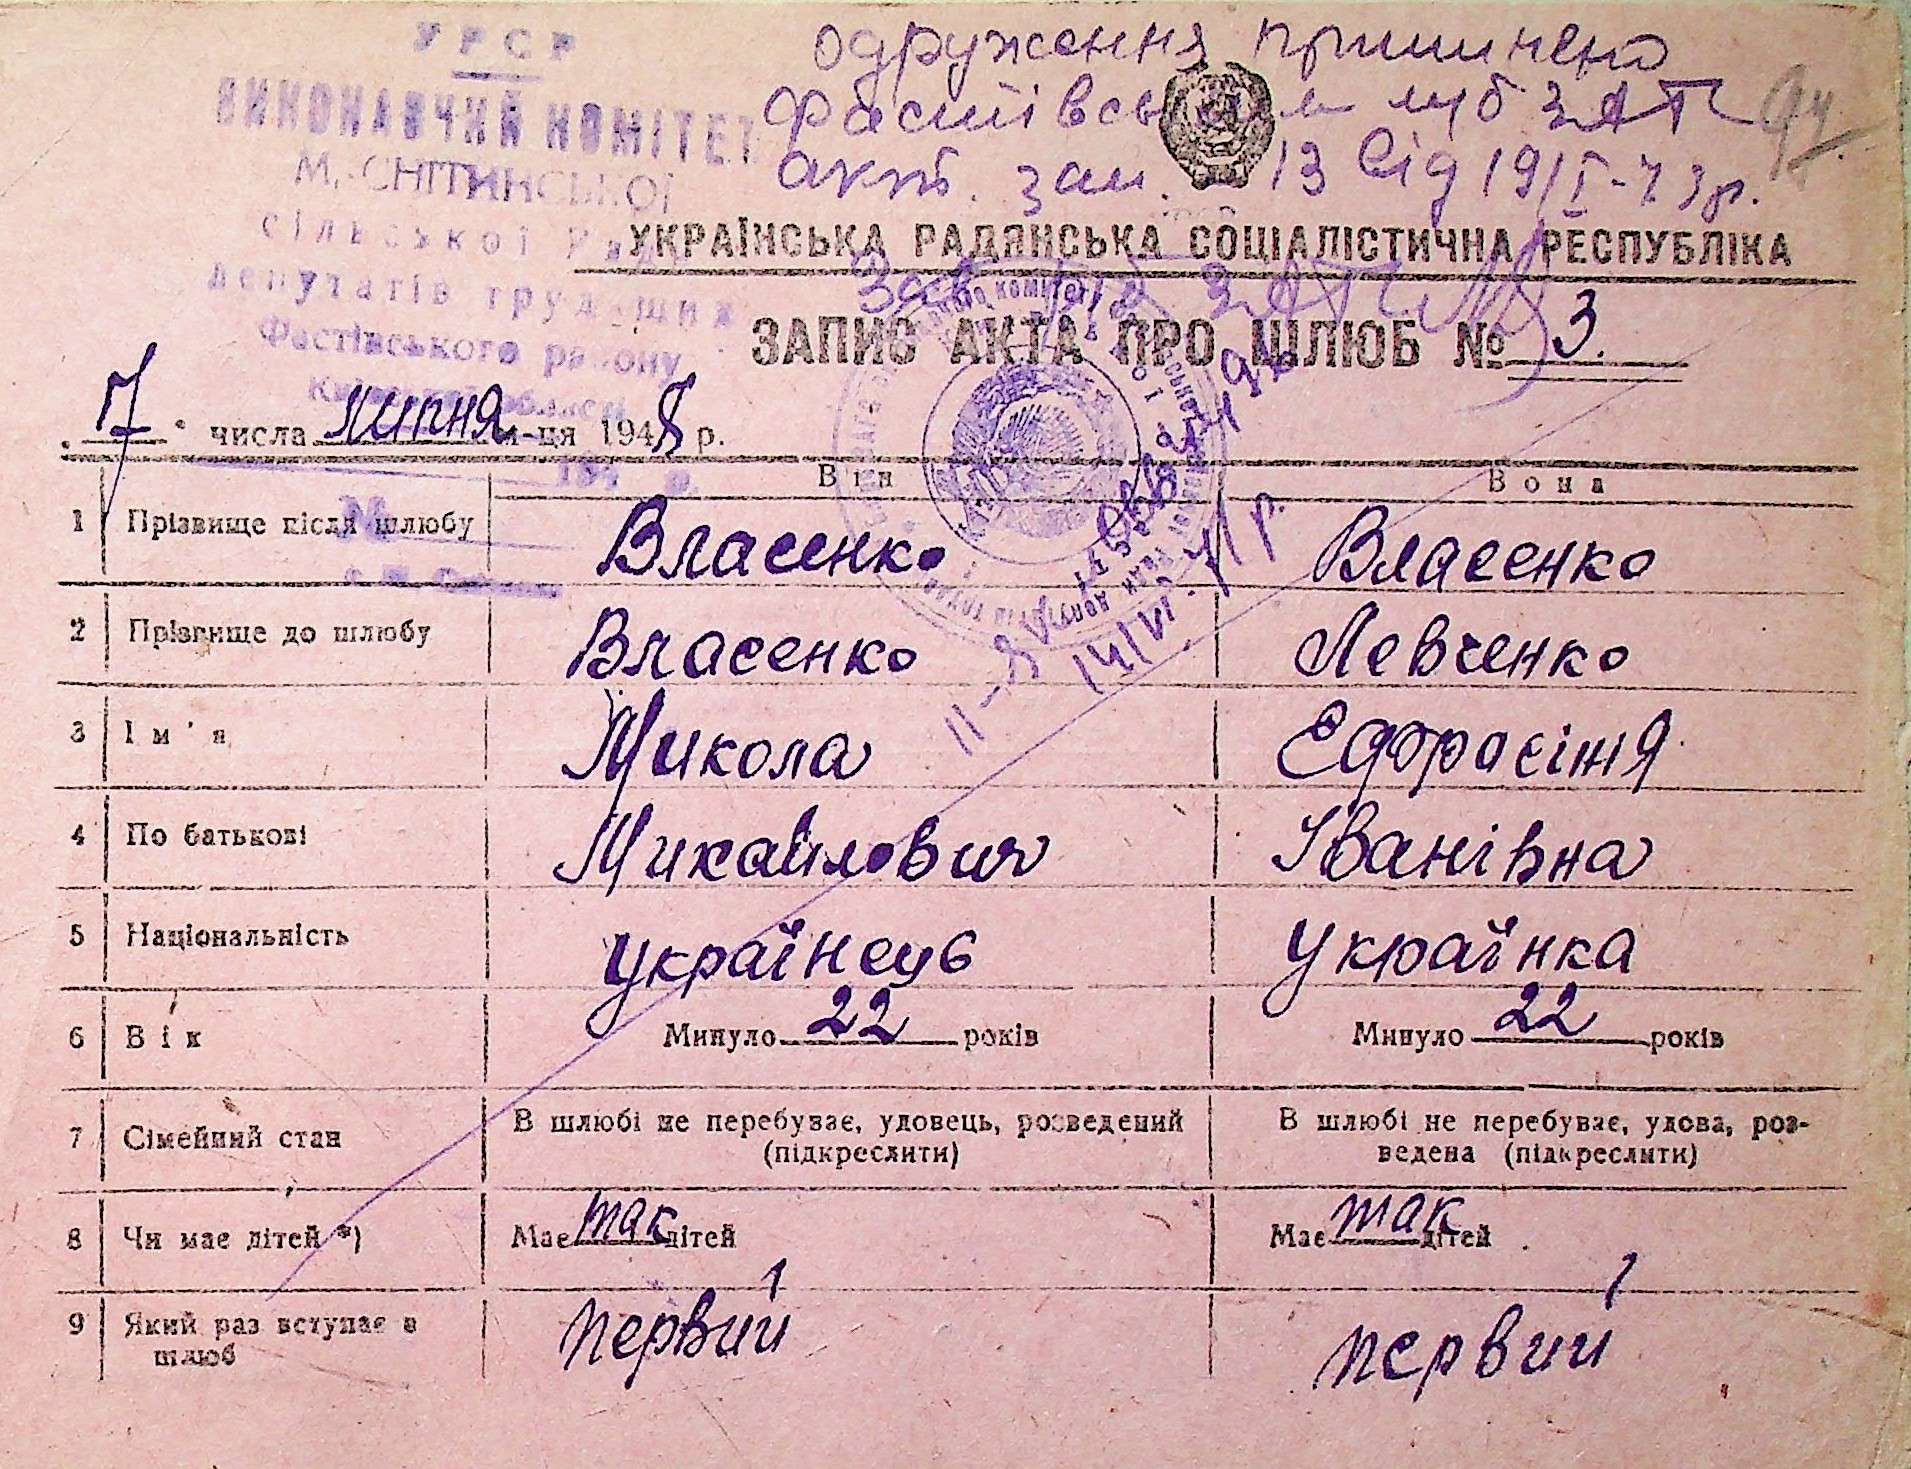 УРСР
ВИКОНАВЧИЙ КОМІТЕТ
М.-СНІТИНСЬКОЇ
сільської Ради
депутатів трудящих
Фастівського району
Київської області
194 р.
одруження припинено
ЗАГС
акт. зап. 13 від 19/I-73р.
94
УКРАЇНСЬКА РАДЯНСЬКА СОЦІАЛІСТИЧНА РЕСПУБЛІКА
ЗАПИС АКТА ПРО ШЛЮБ № 3.
"7" числа липня м-ця 1948 р.
Він Вона
1 Прізвище після шлюбу Власенко Власенко
2 Прізвище до шлюбу Власенко Левченко
3 Ім'я Микола Ефросіня
4 По батькові Михайлович Іванівна
5 Національність українець українка
6 Вік Минуло 22 років Минуло 22 років
7 Сімейний стан В шлюбі не перебуває, удовець, розведений (підкреслити) В шлюбі не перебуває, удова, роз-
ведена (підкреслити)
8 Чи має дітей *) Має так дітей Має так дітей
1 1
9 Який раз вступає в шлюб первий первий